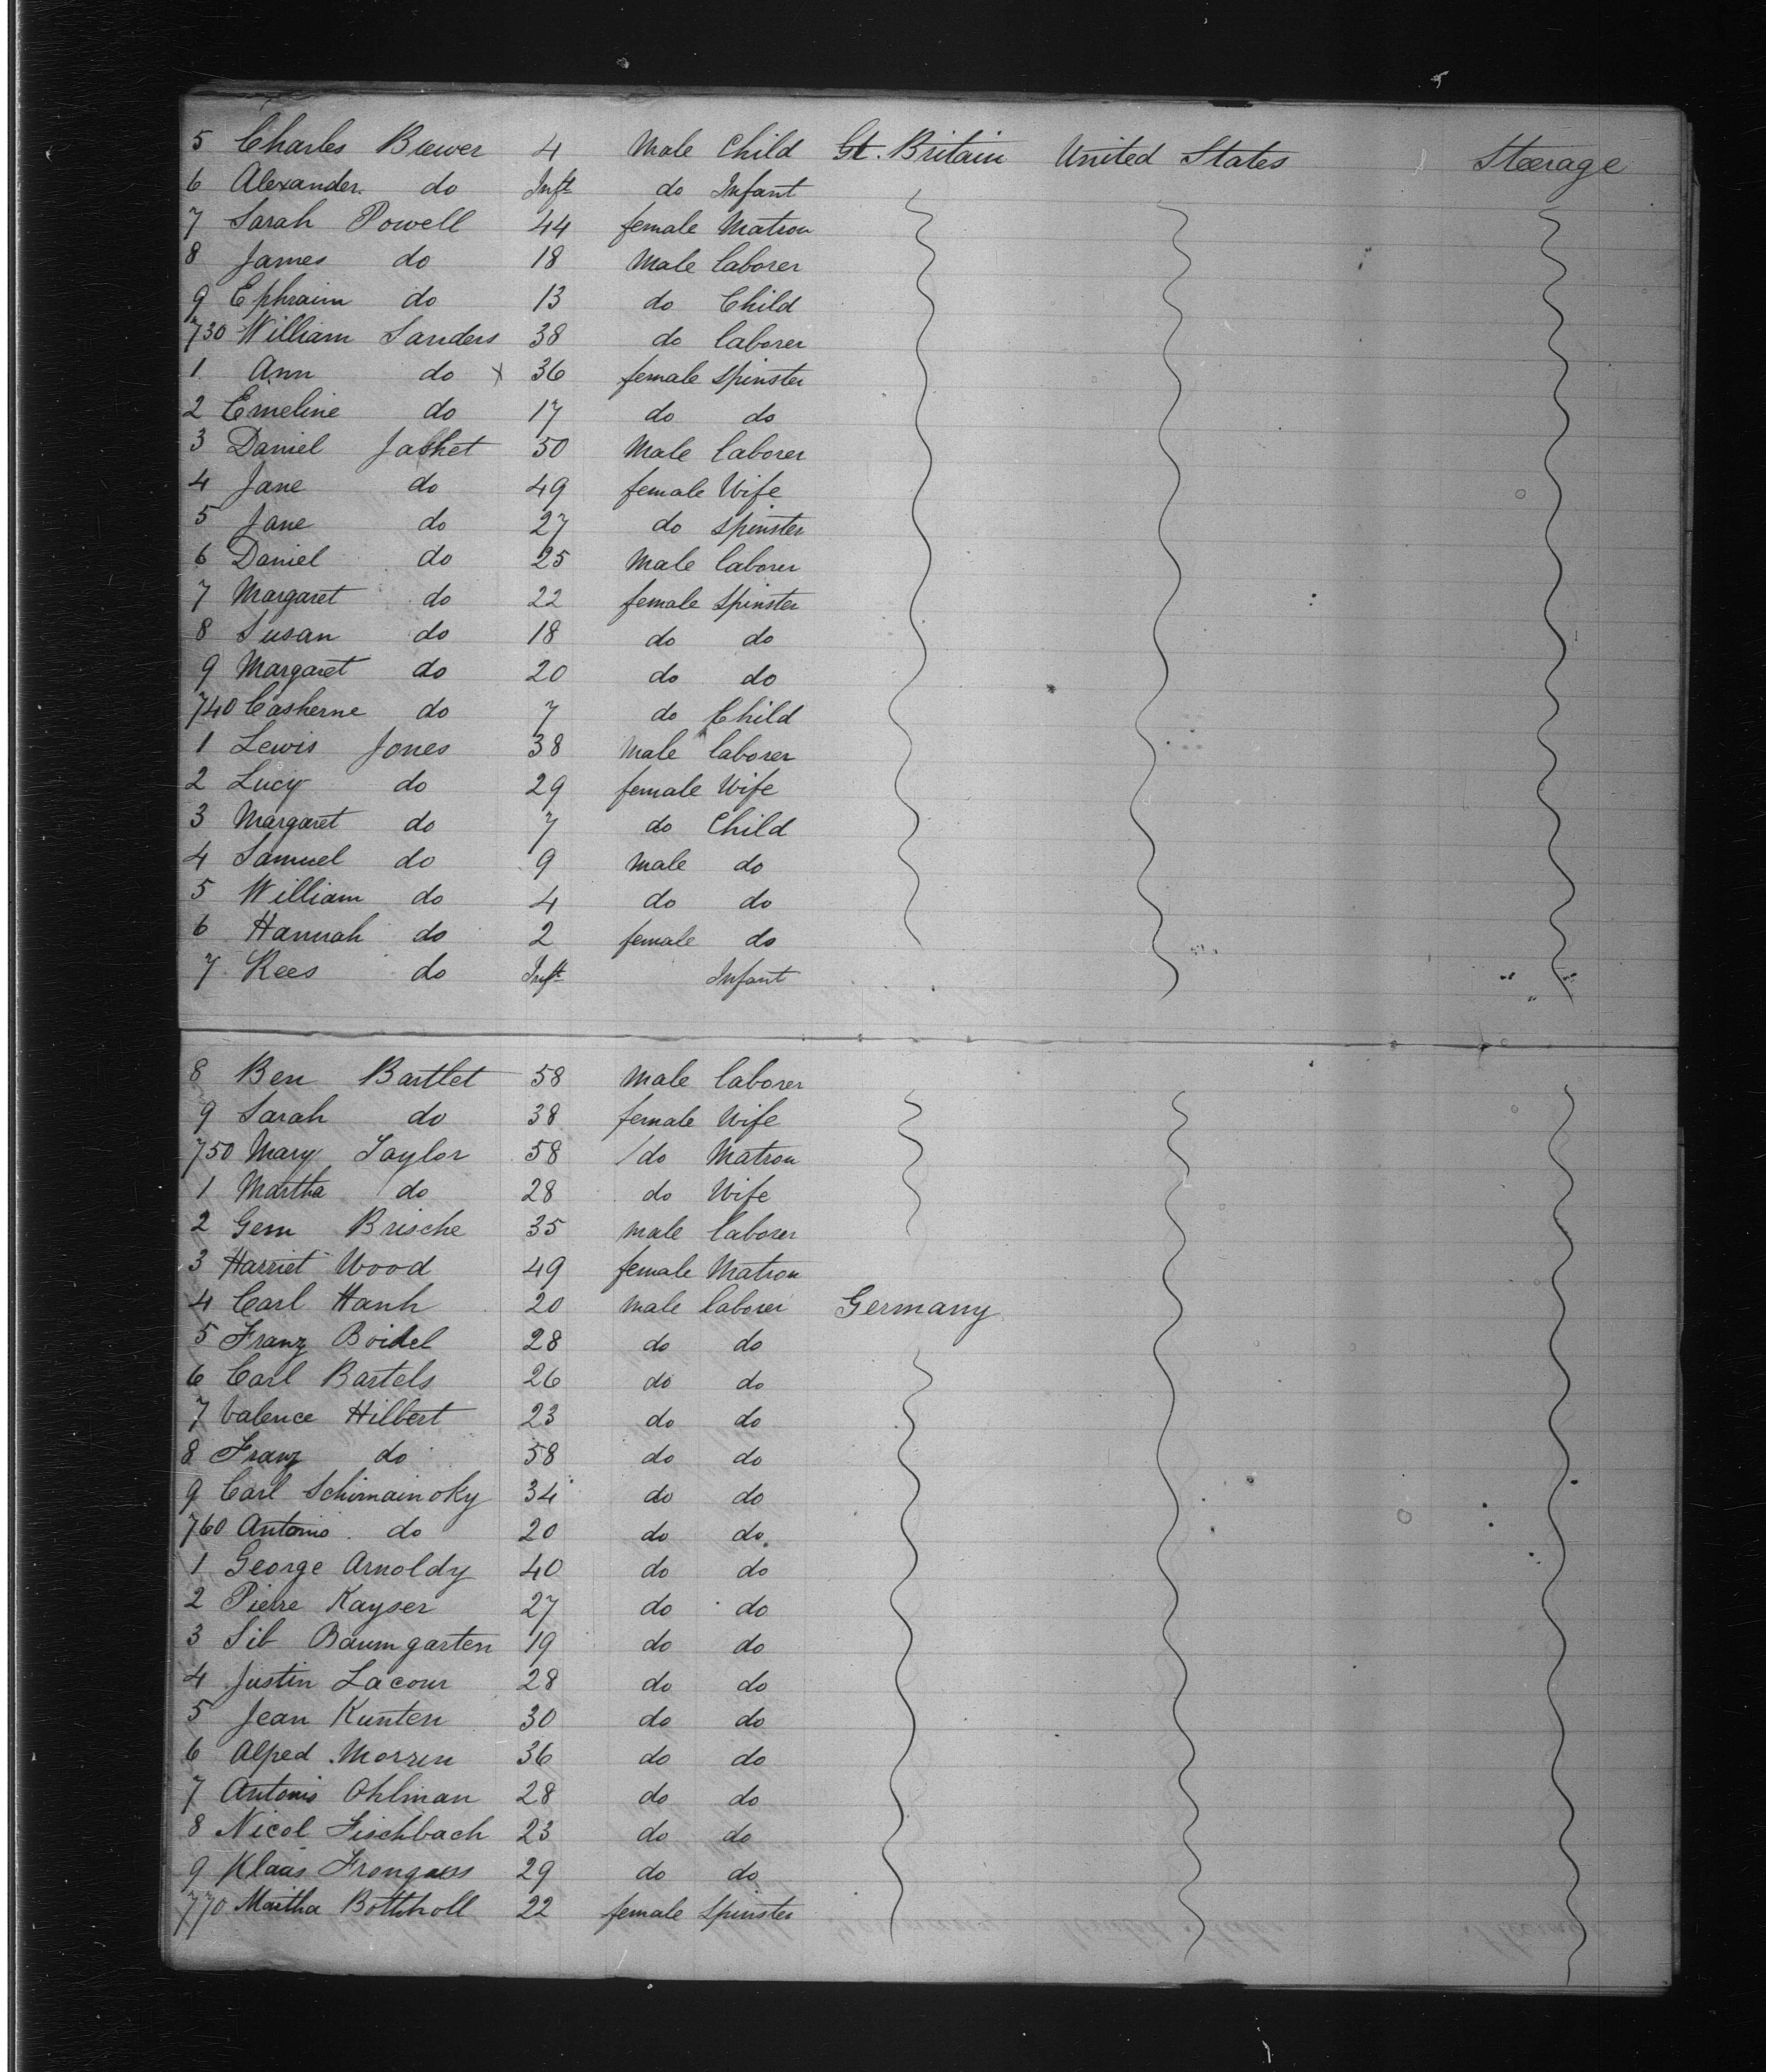 5 Charles Brewer 4 Male Child Gt. Britain United States Steerage
6 Alexander do Inft do Infant
7 Sarah Powell 44 female Matron
8 James do 18 Male laborer
9 Ephraim do 13 do Child
730 William Sanders 38 do laborer
1 Ann do x 36 female Spinster
2 Emeline do 17 do do
3 Daniel 50 Male laborer
4 Jane do 49 female Wife
5 Jane do 27 do Spinster
6 Daniel do 25 Male laborer
7 Margaret do 22 female Spinster
8 Susan do 18 do do
9 Margaret do 20 do do
740 Casherne do 7 do Child
1 Lewis Jones 38 Male laborer
2 Lucy do 29 female Wife
3 Margaret do 7 do Child
4 Samuel do 9 Male do
5 William do 4 do do
6 Hannah do 2 female do
7 Rees do Inft Infant
8 Ben Bartlet 58 Male laborer
9 Sarah do 38 female Wife
750 Mary Taylor 58 do Matron
1 Martha do 28 do Wife
2 Gem Brische 35 male laborer
3 Harriet Wood 49 female Matron
4 Carl Hanh 20 male laborer Germany
5 Franz Boidel 28 do do
6 Carl Bartels 26 do do
7 Valence Hilbert 23 do do
8 Franz do 58 do do
9 Carl Schimainoky 34 do do
760 Antonio do 20 do do
1 George Arnoldy 40 do do
2 Pierre Kayser 27 do do
3 Sib Baumgarten 19 do do
4 Justin Lacour 28 do do
5 Jean Kunten 30 do do
6 Alfred Morren 36 do do
7 Antonio Ohlman 28 do do
8 Nicol Fischbach 23 do do
9 Klaas 29 do do
770 Martha Bottholl 22 female Spinster